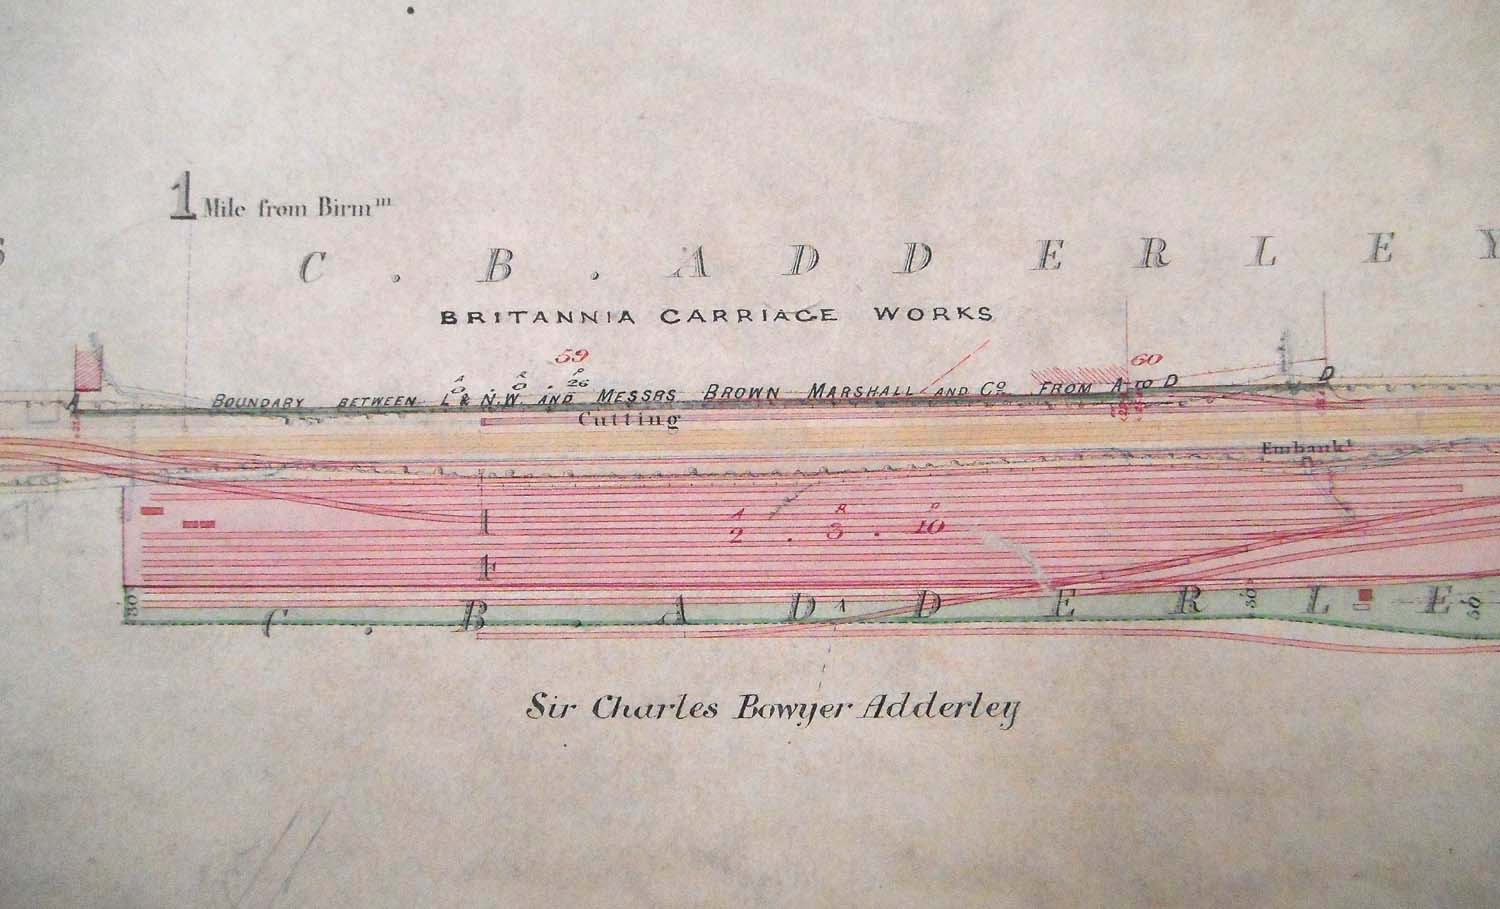 1 Mile from Birmm
S C . B . ADDERLEY
BRITANNIA CARRIAGE WORKS
59
60
A R P
0 . 0 . 26
BOUNDARY BETWEEN L & N.W. AND MESSRS BROWN MARSHALL AND Co. FROM A TO D
A
D
Cutting
Embankt
A R P
2 . 3 . 10
1
4
C . B . ADDERLE
1
30
50
50
Sir Charles Bowyer Adderley